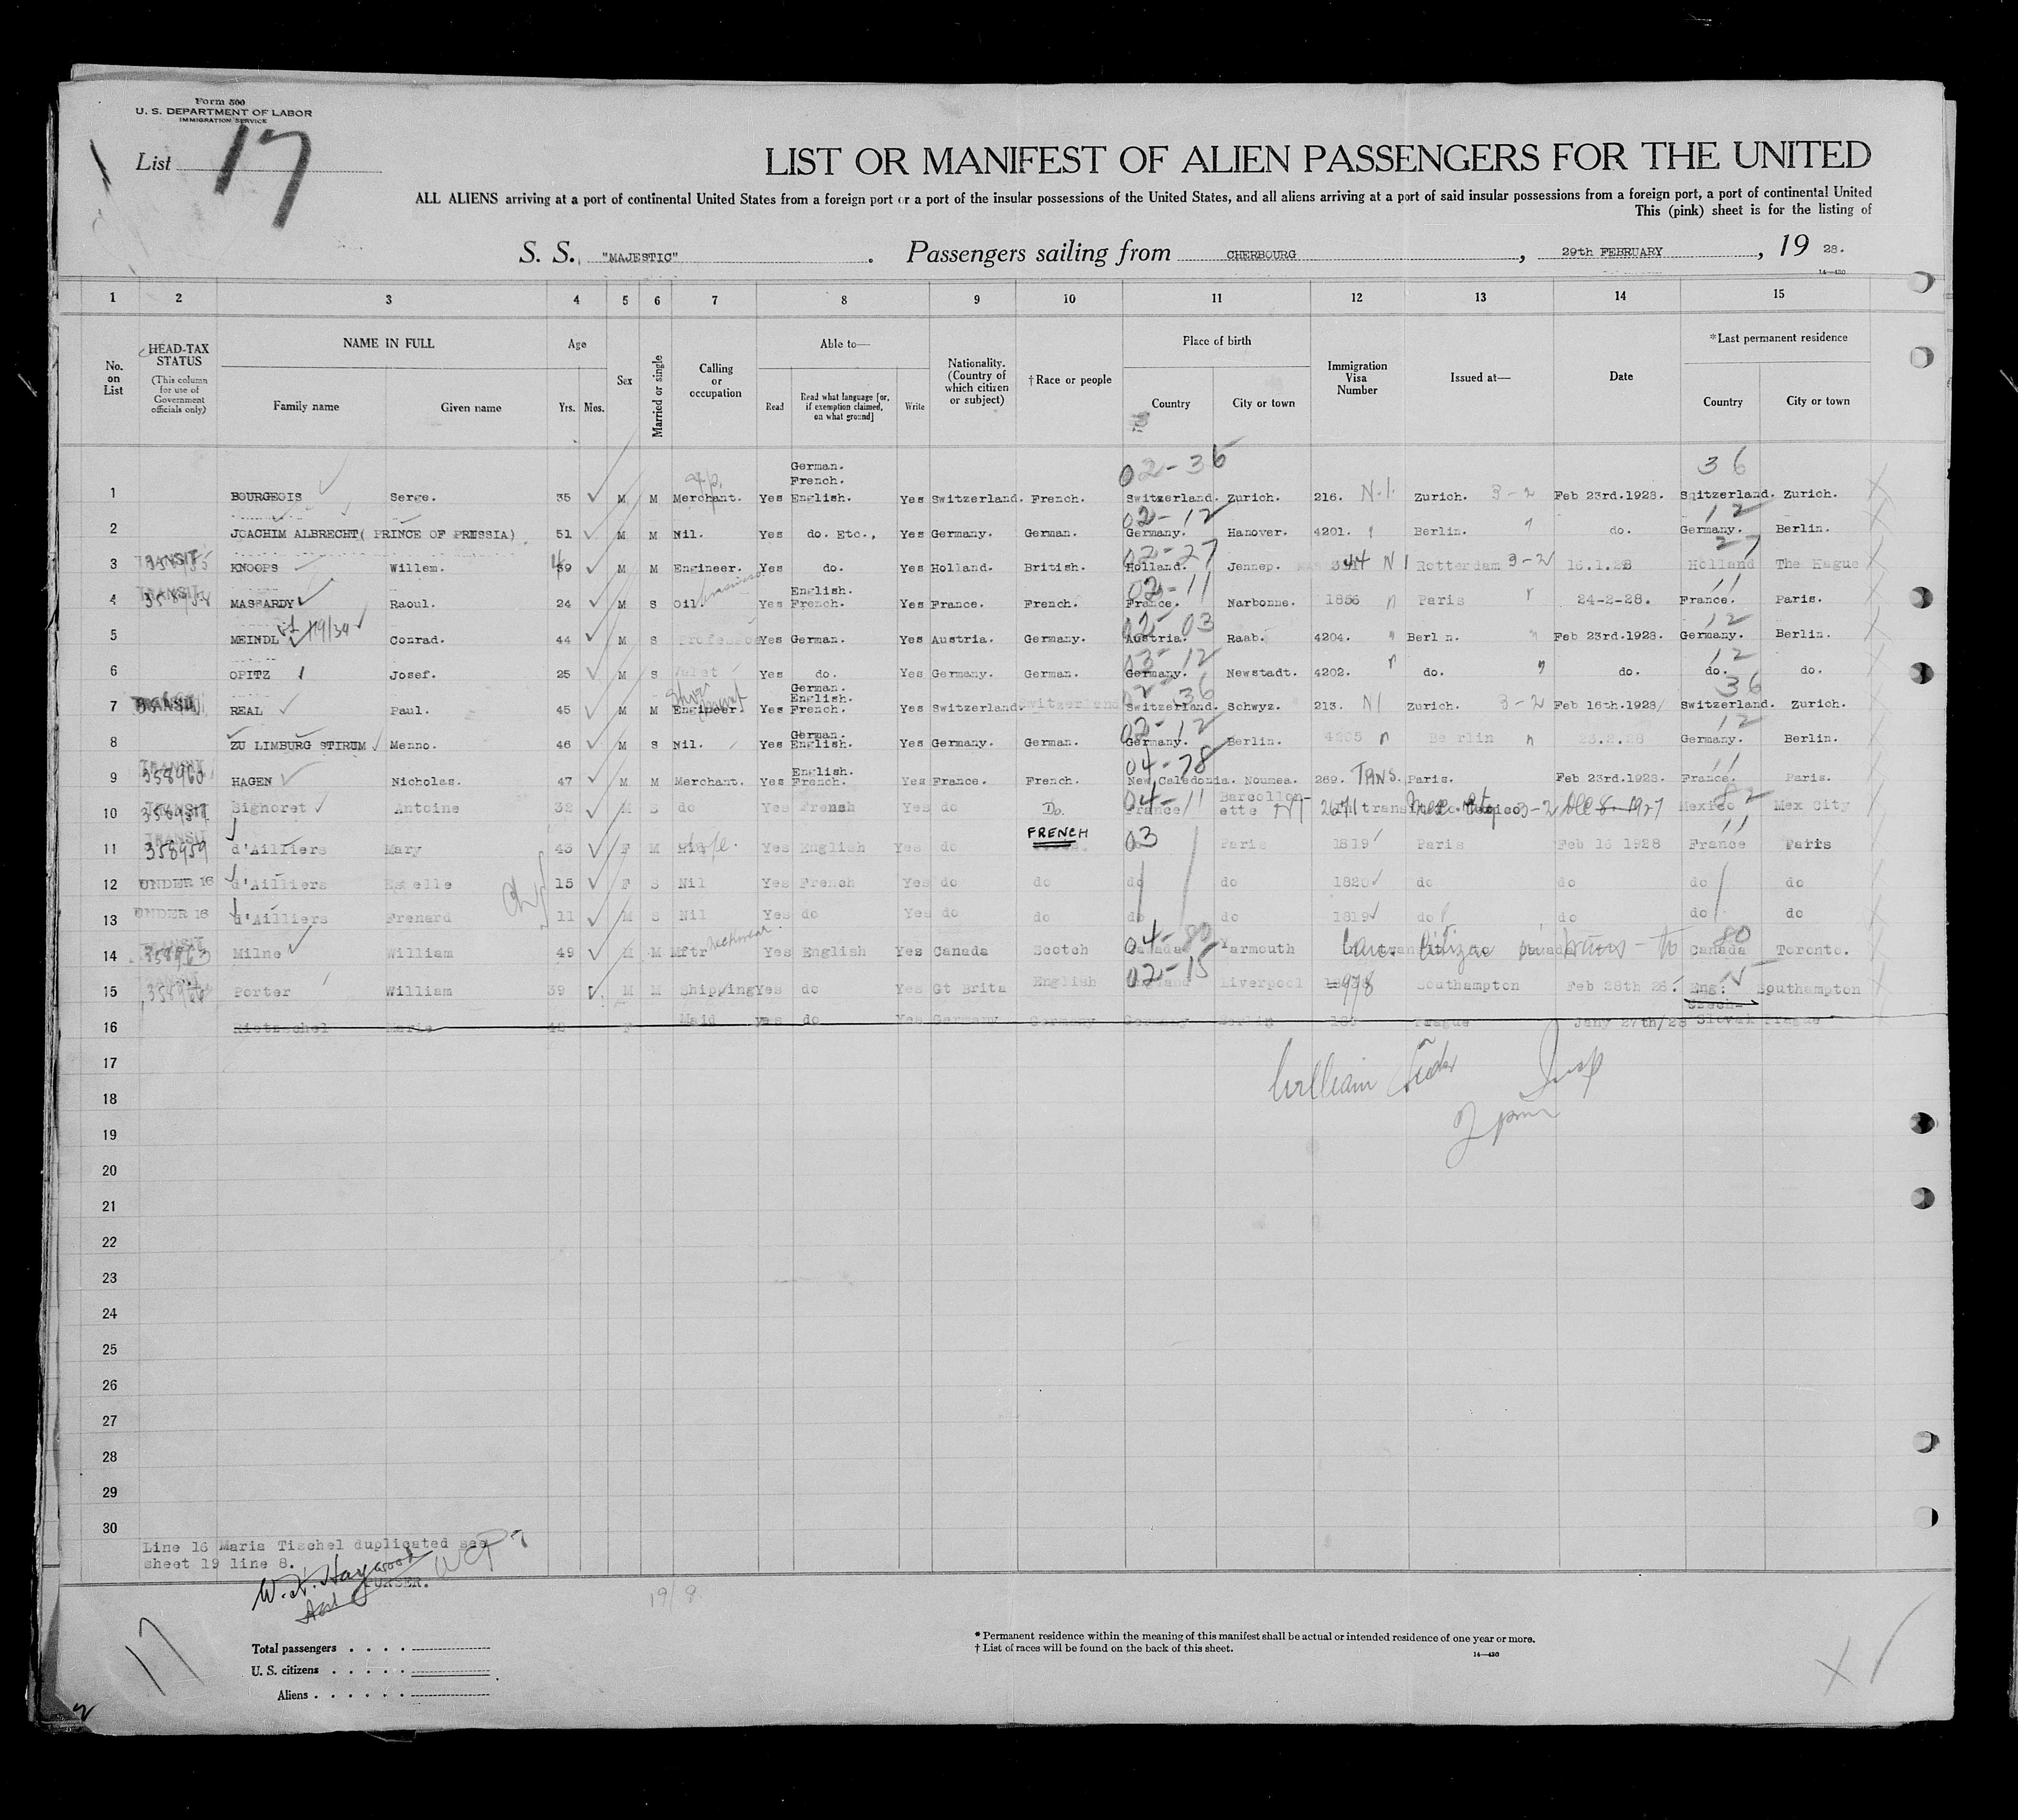 Form 500
U. S. DEPARTMENT OF LABOR
IMMIGRATION SERVICE
List 17
LIST OR MANIFEST OF ALIEN PASSENGERS FOR THE UNITED
ALL ALIENS arriving at a port of continental United States from a foreign port or a port of the insular possessions of the United States, and all aliens arriving at a port of said insular possessions from a foreign port, a port of continental United
This (pink) sheet is for the listing of
S. S. "MAJESTIC" . Passengers sailing from CHERBOURG , 29th FEBRUARY , 19 28.
14—430
1 2 3 4 5 6 7 8 9 10 11 12 13 14 15
No. on List
HEAD-TAX STATUS
(This column for use of Government officials only)
NAME IN FULL
Family name Given name
Age
Yrs. Mos.
Sex
Married or single
Calling or occupation
Able to—
Read
Read what language [or, if exemption claimed, on what ground]
Write
Nationality. (Country of which citizen or subject)
† Race or people
Place of birth
Country City or town
Immigration Visa Number
Issued at—
Date
*Last permanent residence
Country City or town
02-36 36
1 BOURGEOIS Serge. 35 M M Merchant. Yes German. French. English. Yes Switzerland. French. Switzerland. Zurich. 216. N.I. Zurich. 3-2 Feb 23rd.1928. Switzerland. Zurich.
02-12 12
2 JOACHIM ALBRECHT( PRINCE OF PRUSSIA) 51 M M Nil. Yes do. Etc., Yes Germany. German. Germany. Hanover. 4201. Berlin. do. Germany. Berlin.
02-27 27
3 TRANSIT KNOOPS Willem. M M Engineer. Yes do. Yes Holland. British. Holland. Jennep. N I Rotterdam 3-2 16.1.28 Holland The Hague
02-11 11
4 TRANSIT MASRARDY Raoul. 24 M S Oil. Yes English. French. Yes France. French. France. Narbonne. 1856 Paris 24-2-28. France. Paris.
02-03 12
5 MEINDL Conrad. 44 M S Professor Yes German. Yes Austria. Germany. Austria. Raab. 4204. Berl n. Feb 23rd.1928. Germany. Berlin.
03-12 12
6 OPITZ Josef. 25 M S Valet Yes do. Yes Germany. German. Germany. Newstadt. 4202. do. do. do. do.
02-36 36
7 REAL Paul. 45 M M Engineer. Yes German. English. French. Yes Switzerland. Switzerland Switzerland. Schwyz. 213. N I Zurich. 3-2 Feb 16th.1928/ Switzerland. Zurich.
02-12 12
8 ZU LIMBURG STIRUM Menno. 46 M S Nil. Yes German. English. Yes Germany. German. Germany. Berlin. 4205 Berlin 23.2.28 Germany. Berlin.
04-78 11
9 TRANSIT 358960 HAGEN Nicholas. 47 M M Merchant. Yes English. French. Yes France. French. New Caledonia. Noumea. 269. TRNS. Paris. Feb 23rd.1928. France. Paris.
04-11 82
10 TRANSIT Signoret Antoine 32 M S do Yes French Yes do Do. France Barcollonette 2671 transit Mexico 3-2 Dec 8-1927 Mexico Mex City
11 TRANSIT 358959 d'Ailliers Mary 43 F M Yes English Yes do FRENCH 03 Paris 1819 Paris Feb 16 1928 France Paris
12 UNDER 16 d'Ailliers Estelle 15 F S Nil Yes French Yes do do do do 1820 do do do do
13 UNDER 16 d'Ailliers Frenard 11 M S Nil Yes do Yes do do do do 1819 do do do do
04-80 80
14 TRANSIT 358963 Milne William 49 M M Mftr neckwear. Yes English Yes Canada Scotch Canada Yarmouth Canada Toronto.
02-15
15 Porter William 39 M M Shipping Yes do Yes Gt Brita English England Liverpool 978 Southampton Feb 28th 28. Eng. Southampton
16 Nietzschel Marie F Maid yes do Yes Germany Germany Germany Berlin Prague Jany 27th/28 Czech-Slovak Prague
17
18
19
20
21
22
23
24
25
26
27
28
29
30
William
Insp
Line 16 Maria Tischel duplicated see
sheet 19 line 8.
W. H. Haywood
Asst PURSER.
19/8
17
Total passengers
U. S. citizens
Aliens
* Permanent residence within the meaning of this manifest shall be actual or intended residence of one year or more.
† List of races will be found on the back of this sheet.
14—430